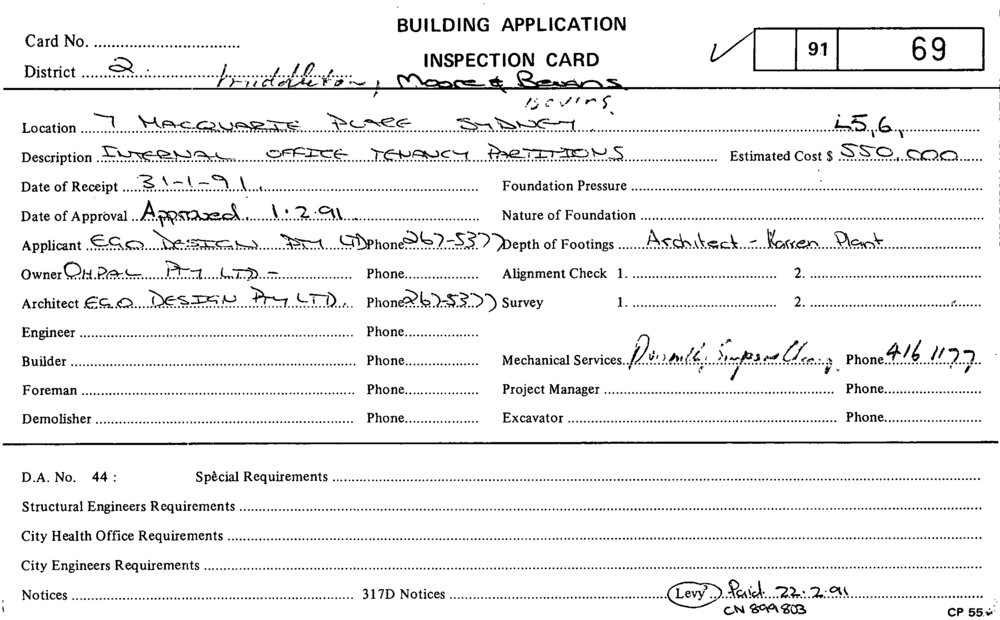 BUILDING APPLICATION
Card No.
INSPECTION CARD
91 69
District 2. Middleton, Moore & Bevans
Bevins
Location 7 MACQUARIE PLACE SYDNEY L5,6,
Description INTERNAL OFFICE TENANCY PARTITIONS Estimated Cost $ 550,000
Date of Receipt 31-1-91. Foundation Pressure
Date of Approval Approved 1.2.91 Nature of Foundation
Applicant EGO DESIGN PTY LTD Phone 267-5377 Depth of Footings Architect - Karren Plant
Owner OHPAL PTY LTD - Phone Alignment Check 1. 2.
Architect EGO DESIGN PTY LTD. Phone 267-5377 Survey 1. 2.
Engineer Phone
Builder Phone Mechanical Services Simpson Phone 416 1177
Foreman Phone Project Manager Phone
Demolisher Phone Excavator Phone
D.A. No. 44 : Special Requirements
Structural Engineers Requirements
City Health Office Requirements
City Engineers Requirements
Notices 317D Notices Levy Paid 22.2.91
CN 899803
CP 55